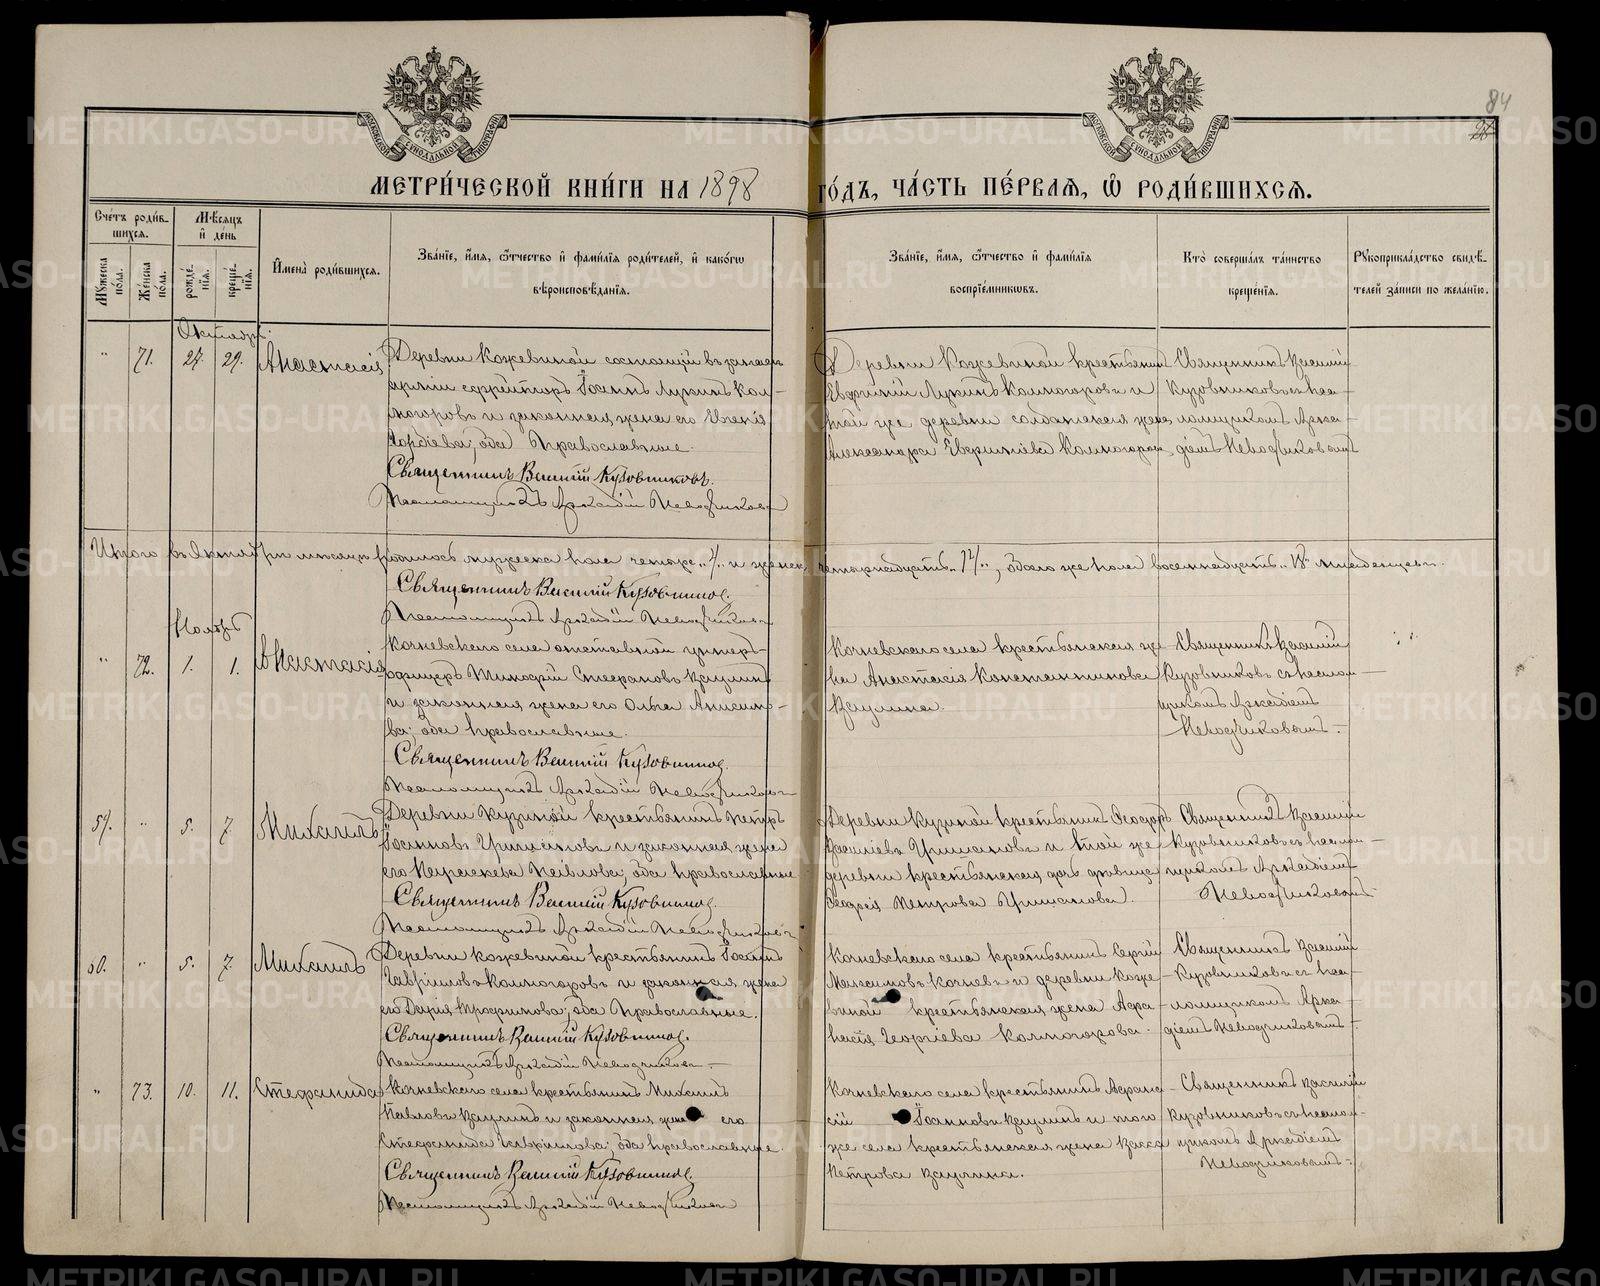 METRIKI.GASO-URAL.RU
84
МОСКОВСКОЙ СѴНОДАЛЬНОЙ ТИПОГРАФІИ
МОСКОВСКОЙ СѴНОДАЛЬНОЙ ТИПОГРАФІИ
МЕТРИ́ЧЕСКОЙ КНИ́ГИ НА 1898 ГО́ДЪ, ЧА́СТЬ ПЕ́РВАЯ, Ѡ РОДИ́ВШИХСЯ.
Сче́тъ роди́в-
шихся.
Мѣ́сяцъ
и҆ де́нь
Мꙋ́жеска по́ла.
Же́нска по́ла.
рожде́нїя.
креще́нїя.
И҆мена̀ роди́вшихся.
Зва́нїе, и҆́мя, ѻ҆́тчество и҆ фами́лїя роди́телей, и҆ како́гѡ
вѣроисповѣ́данїя.
Зва́нїе, и҆́мя, ѻ҆́тчество и҆ фами́лїя
воспрїе́мникѡвъ.
Кто̀ соверша́лъ та́инство
креще́нїя.
Рꙋкоприкла́дство свидѣ́-
телей за́писи по жела́нїю.
Октябрь.
" 71. 27. 29. Анастасія
Деревни Кожевиной состоящій въ запасѣ
арміи ефрейторъ Іоаннъ Лукинъ Кол-
могоровъ и законная жена его Евгенія
оба Православные.
Священникъ Василій Кузовниковъ.
Псаломщикъ Аркадій
Деревни Кожевиной крестьянинъ
Лукинъ Колмогоровъ и
той же деревни солдатская жена
Александра Колмогорова
Священникъ Василій
Кузовниковъ съ пса-
ломщикомъ Арка-
діемъ
Итого въ Октябрѣ мѣсяцѣ родилось мужеска пола четыре "4" и женска четырнадцать "14", обоего же пола восемнадцать "18" младенцевъ.
Священникъ Василій Кузовниковъ.
Псаломщикъ Аркадій
Ноябрь
" 72. 1. 1. Анастасія
Кочневскаго села отставной унтеръ-
офицеръ Стефановъ Ваулинъ
и законная жена его Ольга
ва; оба православные.
Священникъ Василій Кузовниковъ.
Псаломщикъ Аркадій
Кочневскаго села крестьянская же-
на Анастасія Константинова
Ваулина.
Священникъ Василій
Кузовниковъ съ псалом-
щикомъ Аркадіемъ
5. 7. Михаилъ
Деревни Кузиной крестьянинъ Петръ
Іоанновъ и законная жена
его Параскева Павлова; оба православные
Священникъ Василій Кузовниковъ.
Псаломщикъ Аркадій
Деревни Кузиной крестьянинъ Ѳеодоръ
Василіевъ и той же
деревни крестьянская дочь дѣвица
Петрова
Священникъ Василій
Кузовниковъ съ псалом-
щикомъ Аркадіемъ
60. " 5. 7. Михаилъ
Деревни Кожевиной крестьянинъ Іоаннъ
Гавріиловъ Колмогоровъ и законная жена
его Дарія Трофимова; оба Православные.
Священникъ Василій Кузовниковъ.
Псаломщикъ Аркадій
Кочневскаго села крестьянинъ Сергій
Максимовъ Кочневъ и деревни Коже-
виной крестьянская жена Аѳа-
насія Георгіева Колмогорова.
Священникъ Василій
Кузовниковъ съ пса-
ломщикомъ Арка-
діемъ
" 73. 10. 11. Стефанида
Кочневскаго села крестьянинъ Михаилъ
Павловъ Ваулинъ и законная жена его
Стефанида Гаврилова; оба православные.
Священникъ Василій Кузовниковъ.
Псаломщикъ Аркадій
Кочневскаго села крестьянинъ Аѳана-
сій Іоанновъ Ваулинъ и того
же села крестьянская жена Васса
Петрова Ваулина.
Священникъ Василій
Кузовниковъ съ псалом-
щикомъ Аркадіемъ